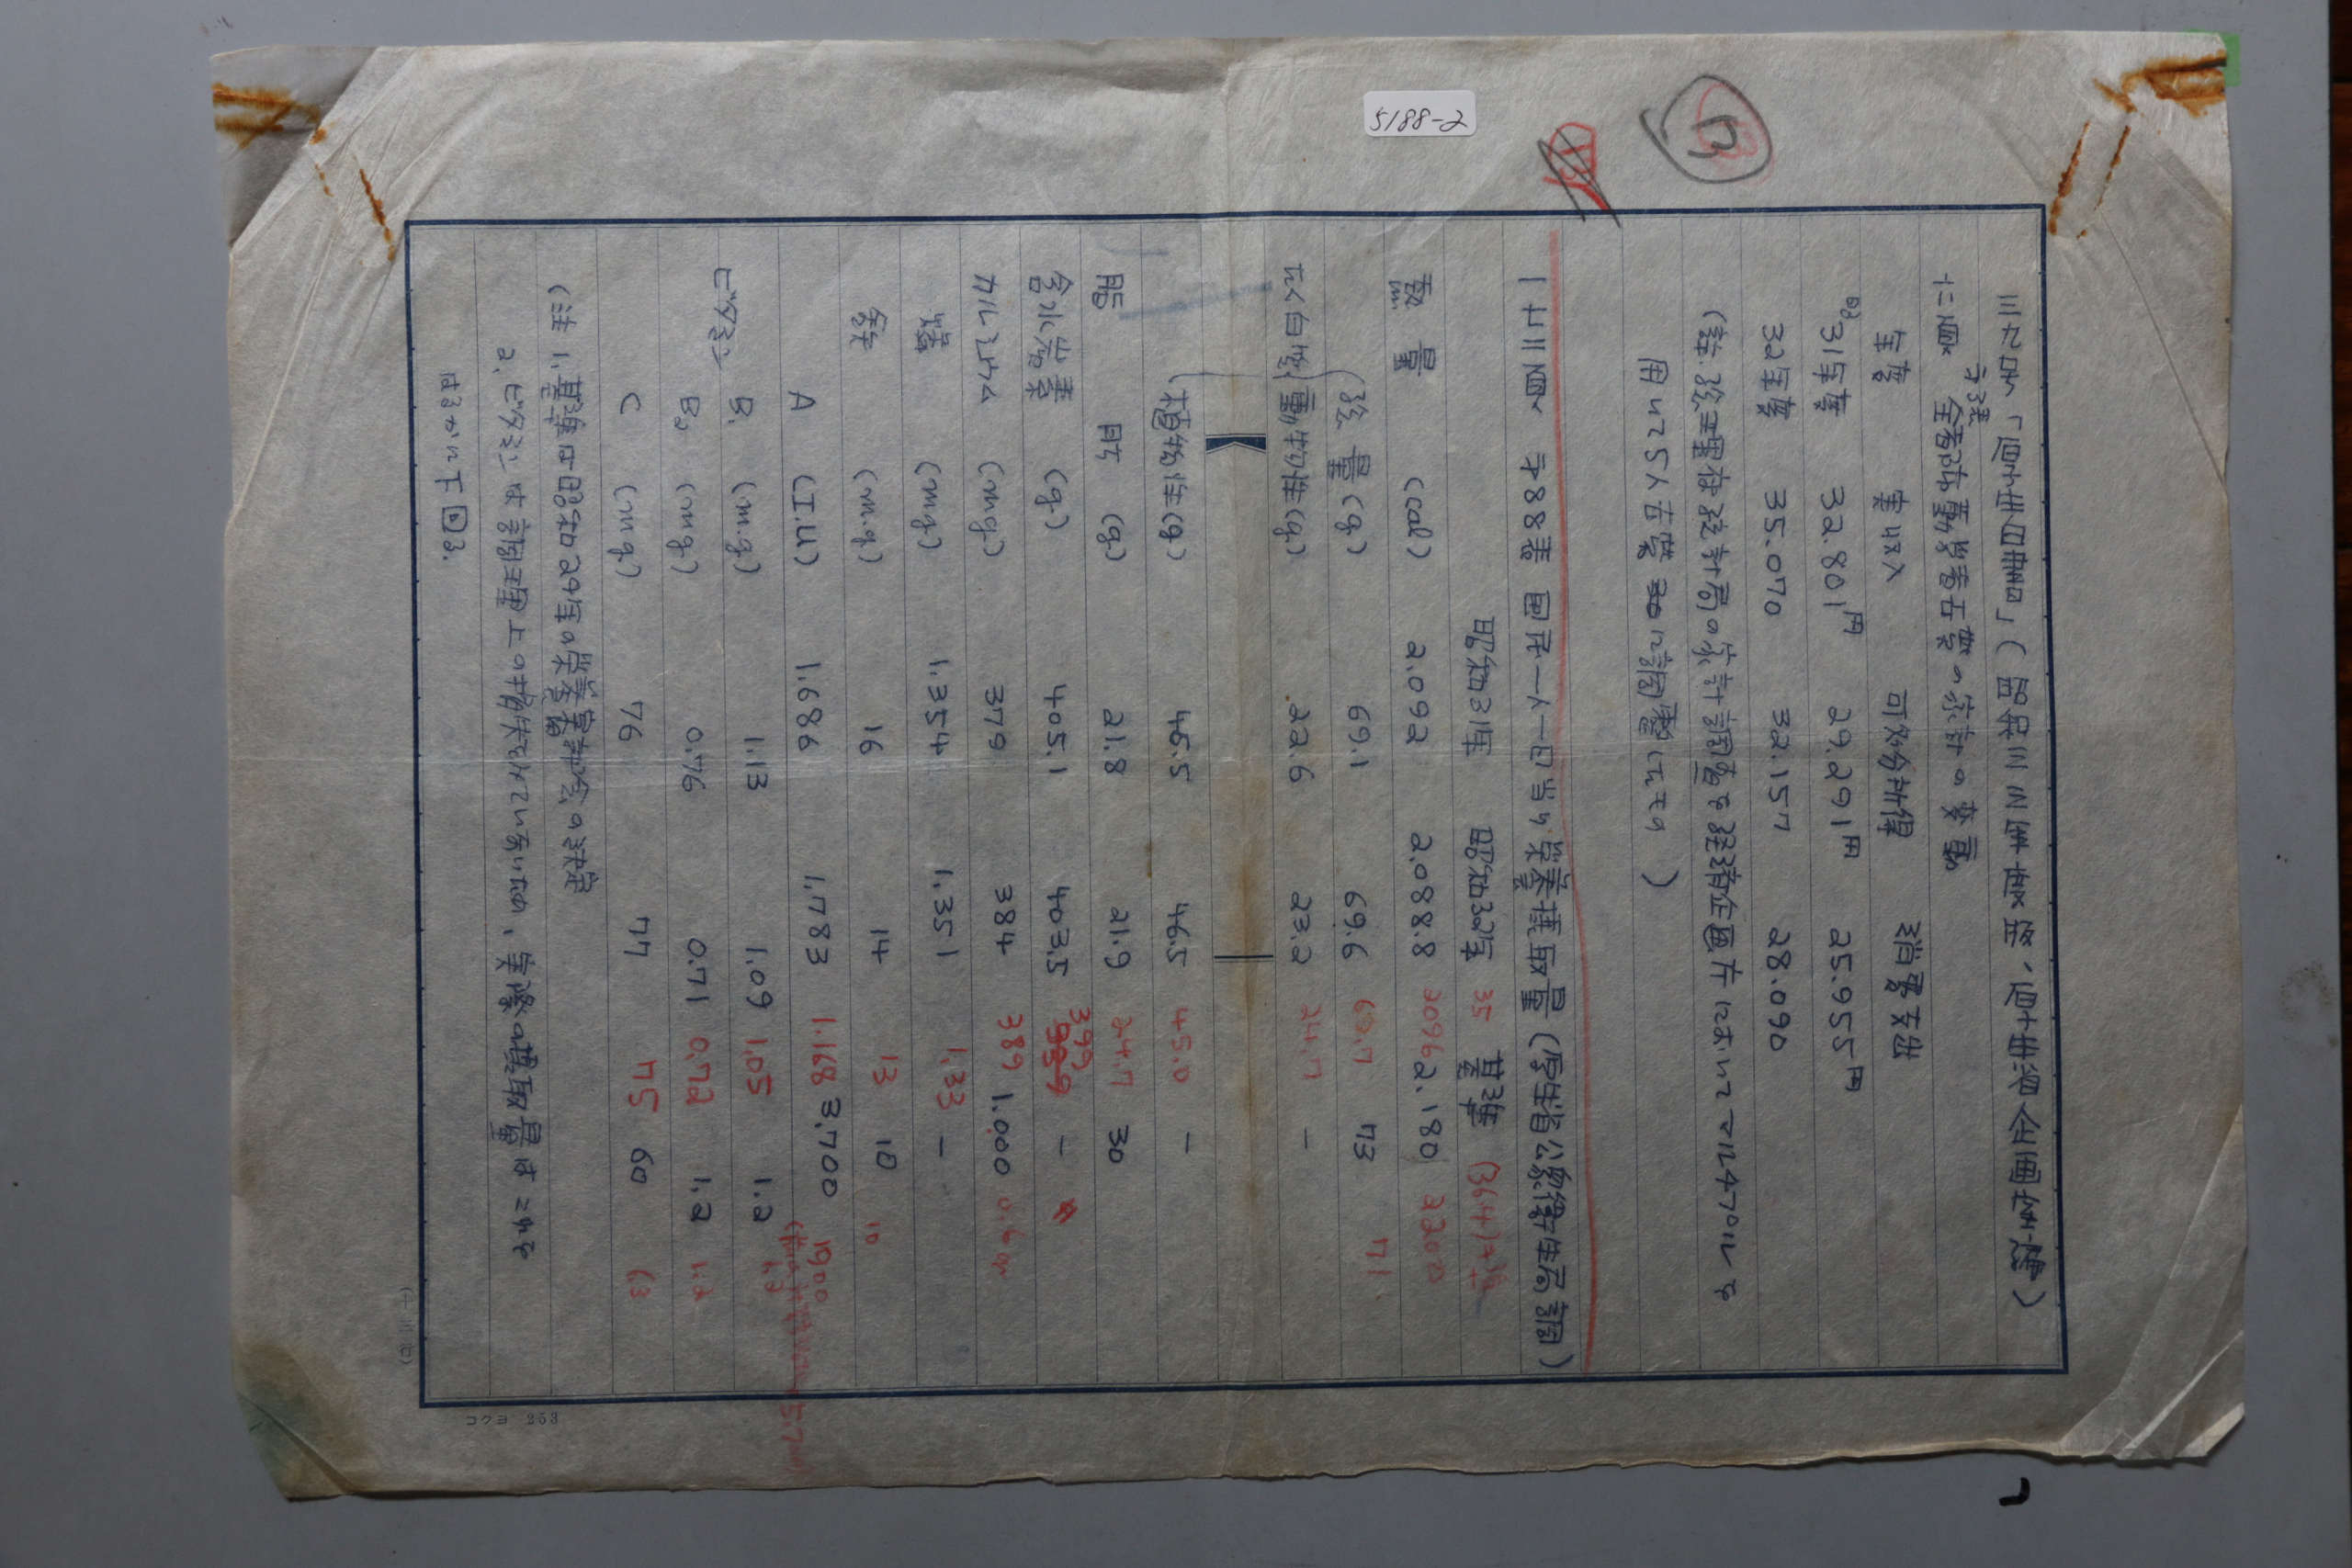 5188-2
十二頁 全都市勤労者世帯の家計の変動
年度 実収入 可処分所得 消費支出
31年度 32.801円 29.291円 25.955円
32年度 35.070 32.157 28.090
(註. 総理府統計局の家計調査を経済企画庁においてマルチプルを
用いて5人世帯30に調整したもの)
一二三頁 第88表 国民一人一日当り栄養摂取量(厚生省公衆衛生局調)
昭和31年 昭和32年 35 基準
熱量 (cal) 2.092 2.088.8 2096 2.180 2200
総量(g) 69.1 69.6 69.7 73 71
たん白質 動物性(g) 22.6 23.2 24.7 -
植物性(g) 46.5 46.5 45.0 -
脂肪 (g) 21.8 21.9 24.7 30
含水炭素 (g) 405.1 403.5 399 -
カルシウム (mg) 379 384 389 1.000
燐 (mg) 1.354 1.351 1.33 -
鉄 (m.g) 16 14 13 10 10
A (I.U) 1.686 1.783 1.168 3.700 1900
ビタミン B₁ (m.g) 1.13 1.09 1.05 1.2 1.3
B₂ (mg) 0.76 0.71 0.72 1.2 1.2
C (mg) 76 77 75 60 63
(注 1. 基準は昭和29年の栄養審議会の決定
2. ビタミンは調理上の損失をみていないため、実際の摂取量はこれを
はるかに下回る.
コクヨ 253